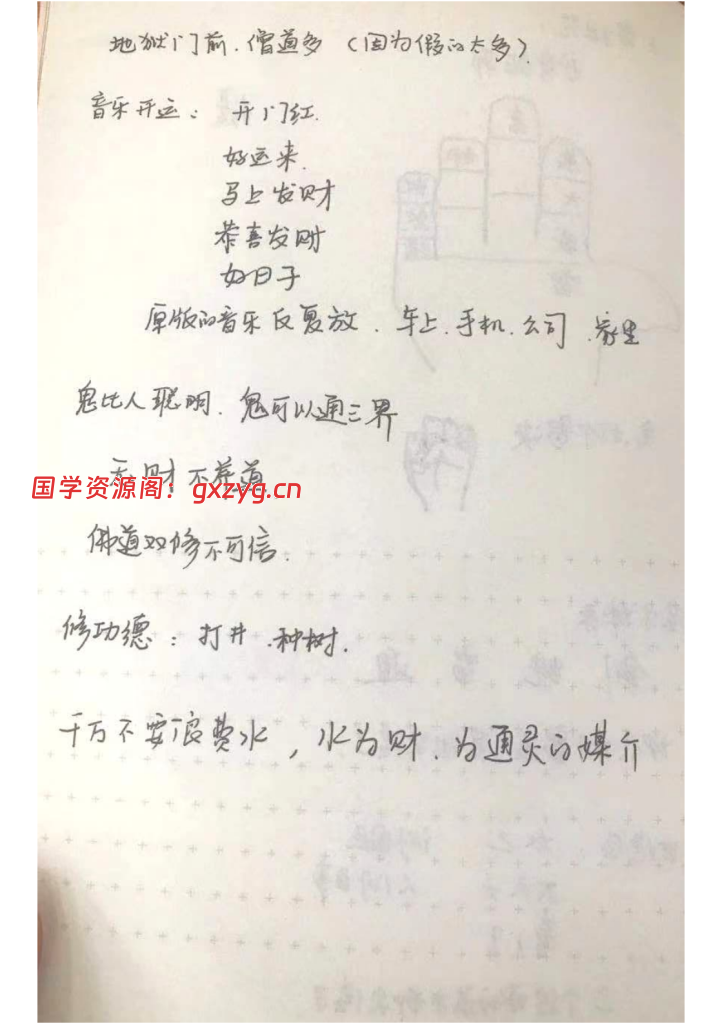 地狱门前.僧道多（因为假的太多）.
音乐开运： 开门红.
好运来.
马上发财
恭喜发财
好日子
原版的音乐反复放 . 车上.手机.公司 .家里
鬼比人聪明. 鬼可以通三界
无财不养道
国学资源阁：gxzyg.cn
佛道双修不可信.
修功德： 打井 .种树.
千万不要浪费水，水为财.为通灵的媒介